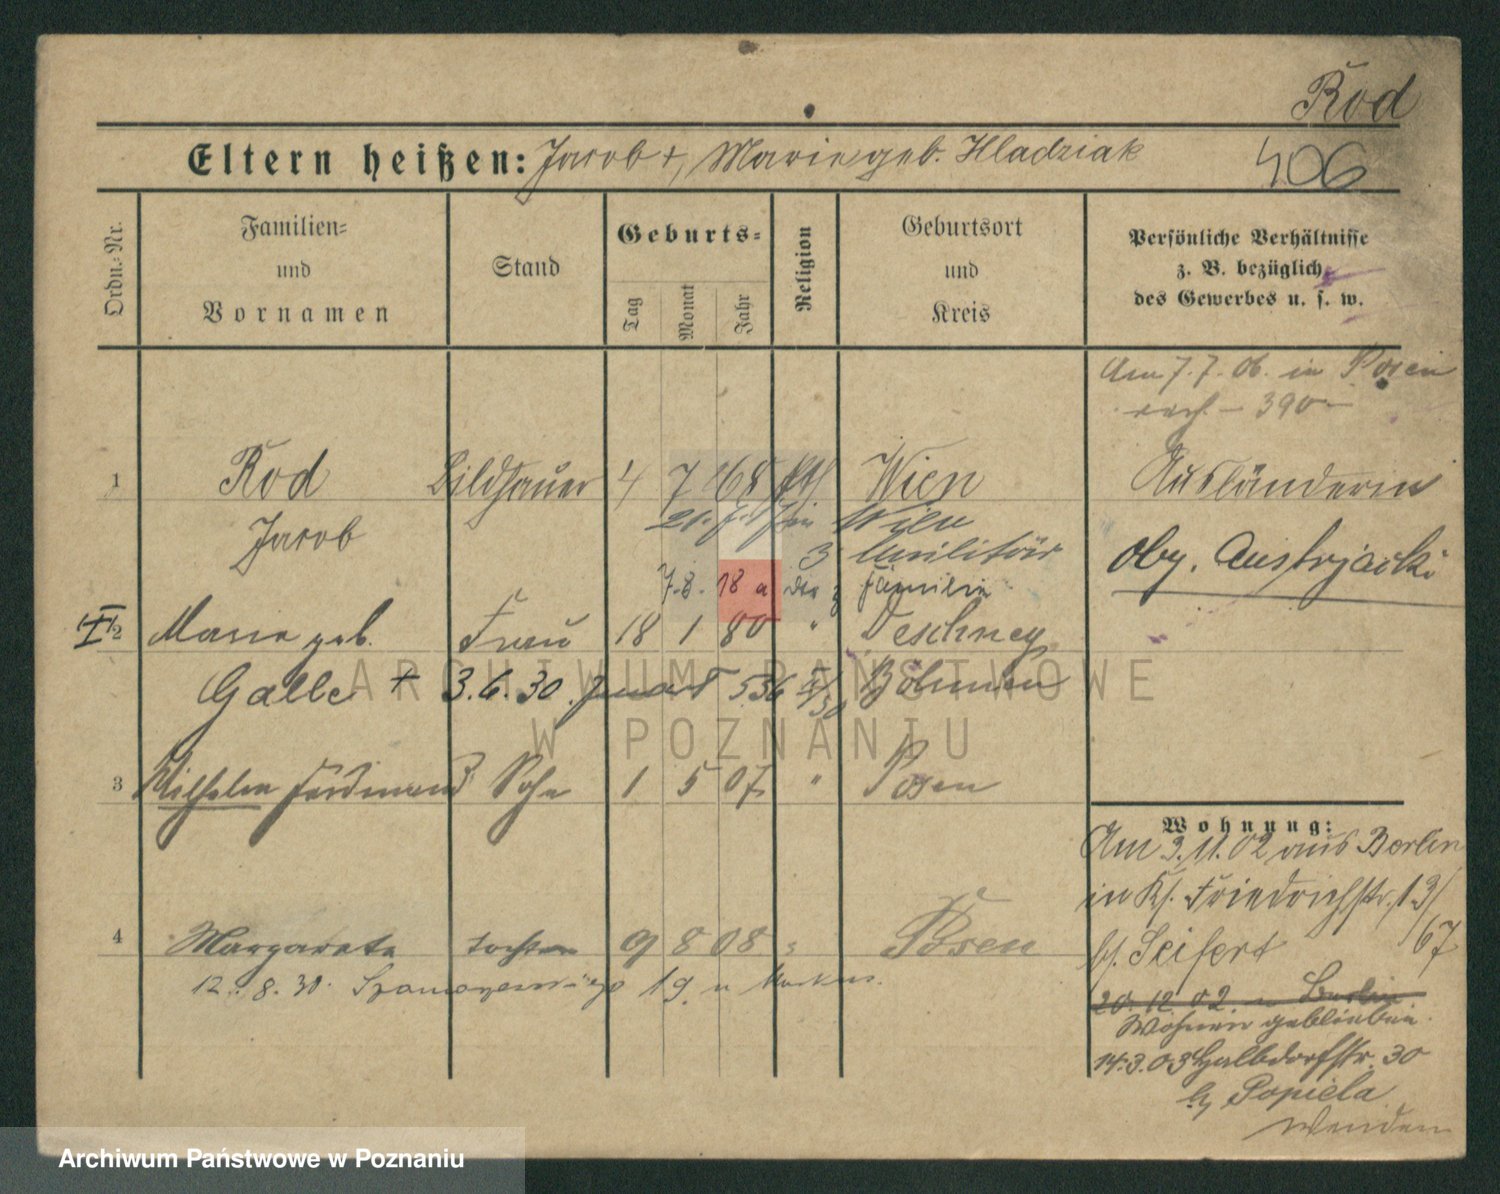 Rod
Eltern heißen: Jacob +, Marie geb. Hladziak 406
Ordn.-Nr.
Familien-
und
Vornamen
Stand
Geburts-
Tag
Monat
Jahr
Religion
Geburtsort
und
Kreis
Persönliche Verhältnisse
z. B. bezüglich
des Gewerbes u. s. w.
Am 7.7.06. in Posen
390
1 Rod Bildhauer 4 7 68 kth Wien
Ausländerin
Jacob
Wien
3 Militär
7.8.18 a der Familie
oby. Austrjacki
2 Marie geb. Frau 18 1 80 " Deschney
Galle + 3.6.30. 536 Böhmen
3 Wilhelm Ferdinand Sohn 1 5 07 " Posen
Wohnung:
Am 3.11.02 aus Berlin
in Ks. Friedrichstr. 13/
67
bs. Seifert
4 Margarete Tochter 9 8 08 Posen
12.8.30. 19
20.12.02 n Berlin
Wohnen geblieben
14.3.03 Halbdorfstr. 30
by Popiela
Wenden
ARCHIWUM PAŃSTWOWE
W POZNANIU
Archiwum Państwowe w Poznaniu